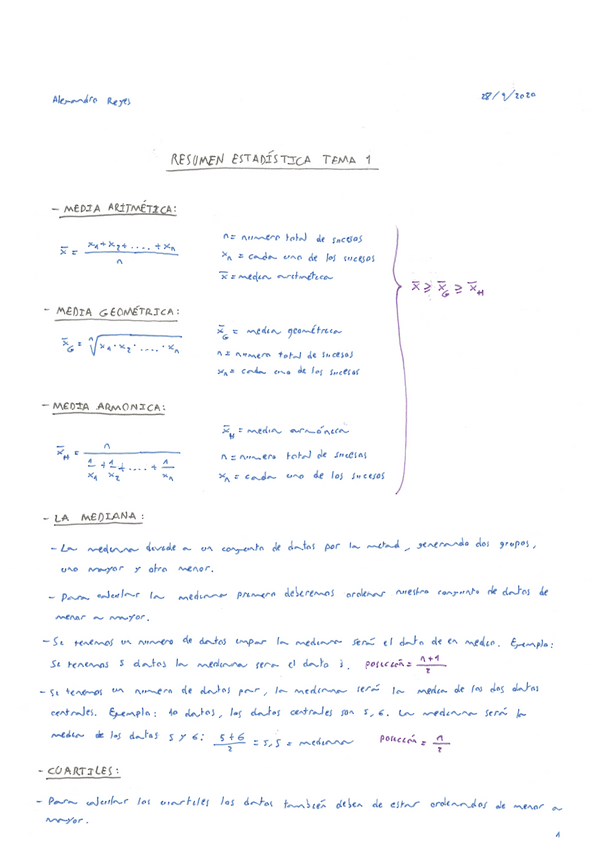 Alejandro Reyes
28/9/2020
RESUMEN ESTADÍSTICA TEMA 1
- MEDIA ARITMÉTICA:
x̄ = (x₁+x₂+....+xₙ)/n
n = numero total de sucesos
xₙ = cada uno de los sucesos
x̄ = media aritmética
x̄ ≥ x̄_G ≥ x̄_H
- MEDIA GEOMÉTRICA:
x̄_G = ⁿ√(x₁·x₂·....·xₙ)
x̄_G = media geométrica
n = numero total de sucesos
xₙ = cada uno de los sucesos
- MEDIA ARMONICA:
x̄_H = n/(1/x₁ + 1/x₂ + .... + 1/xₙ)
x̄_H = media armónica
n = numero total de sucesos
xₙ = cada uno de los sucesos
- LA MEDIANA:
- La mediana divide a un conjunto de datos por la mitad, generando dos grupos,
uno mayor y otro menor.
- Para calcular la mediana primero deberemos ordenar nuestro conjunto de datos de
menor a mayor.
- Si tenemos un numero de datos impar la mediana será el dato de en medio. Ejemplo:
Si tenemos 5 datos la mediana sera el dato 3. posición = (n+1)/2
- Si tenemos un numero de datos par, la mediana será la media de los dos datos
centrales. Ejemplo: 10 datos, los datos centrales son 5, 6. La mediana será la
media de los datos 5 y 6: (5+6)/2 = 5,5 = mediana posición = n/2
- CUARTILES:
- Para calcular los cuartiles los datos también deben de estar ordenados de menor a
mayor.
1